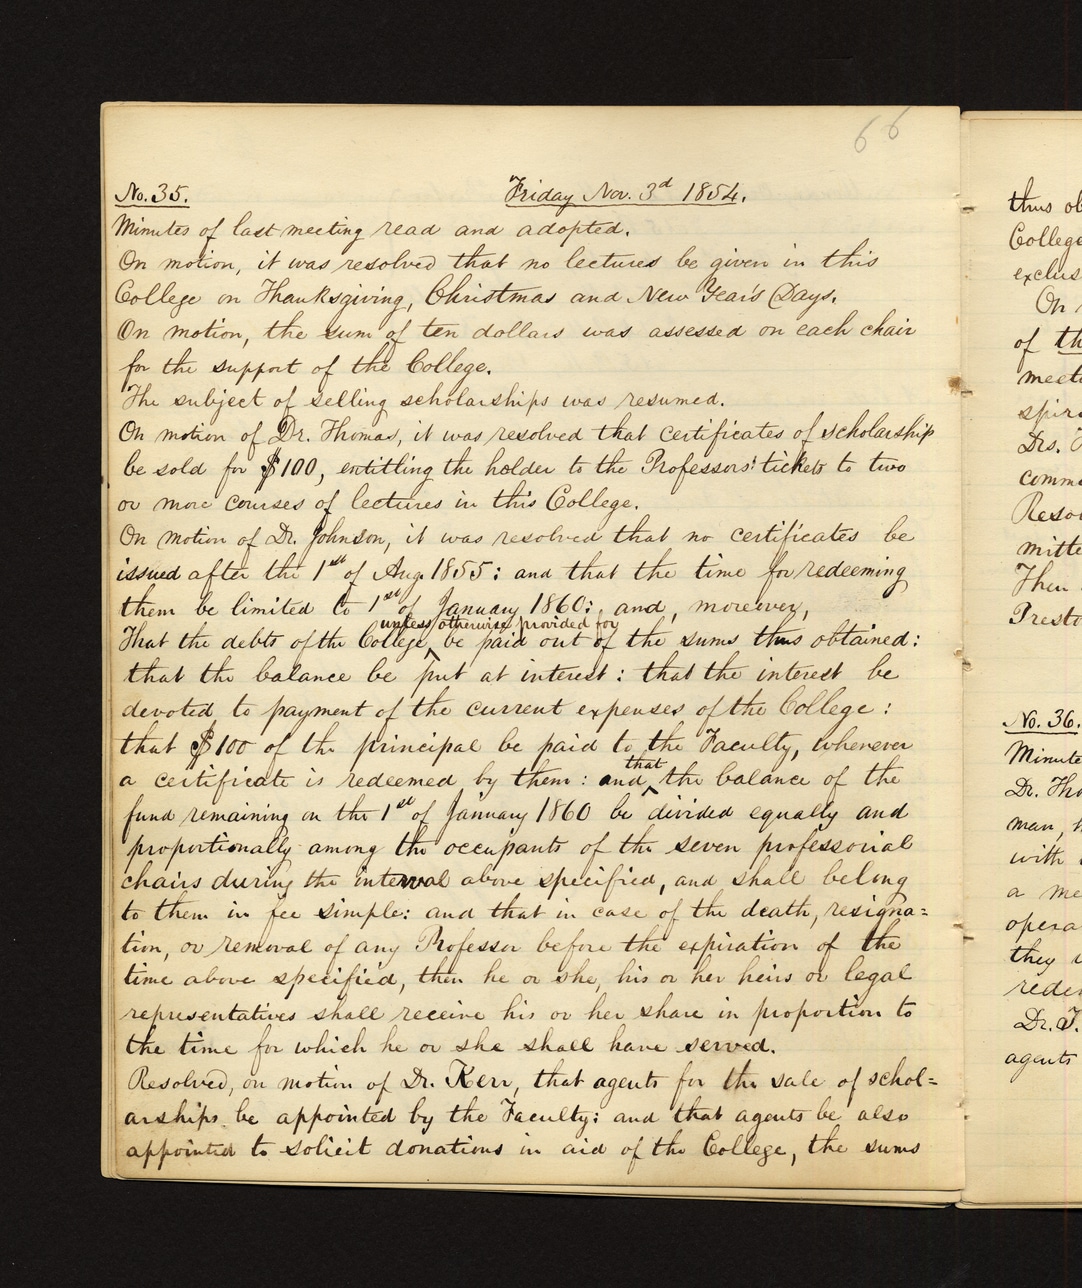 66
No. 35. Friday Nov. 3d 1854.
Minutes of last meeting read and adopted.
On motion, it was resolved that no lectures be given in this
College on Thanksgiving, Christmas and New Year's Days.
On motion, the sum of ten dollars was assessed on each chair
for the support of the College.
The subject of selling scholarships was resumed.
On motion of Dr. Thomas, it was resolved that certificates of scholarship
be sold for $100, entitling the holder to the Professors' tickets to two
or more courses of lectures in this College.
On motion of Dr. Johnson, it was resolved that no certificates be
issued after the 1st of Aug. 1855: and that the time for redeeming
them be limited to 1st of January 1860: and, moreover,
unless otherwise provided for
That the debts of the College, be paid out of the sums thus obtained:
that the balance be put at interest: that the interest be
devoted to payment of the current expenses of the College:
that $100 of the principal be paid to the Faculty, whenever
that
a certificate is redeemed by them: and the balance of the
fund remaining on the 1st of January 1860 be divided equally and
proportionally among the occupants of the seven professorial
chairs during the interval above specified, and shall belong
to them in fee simple: and that in case of the death, resigna=
tion, or removal of any Professor before the expiration of the
time above specified, then he or she, his or her heirs or legal
representatives shall receive his or her share in proportion to
the time for which he or she shall have served.
Resolved, on motion of Dr. Kerr, that agents for the sale of schol=
arships be appointed by the Faculty: and that agents be also
appointed to solicit donations in aid of the College, the sums
thus ob
College
exclus
On
of th
meeti
spir
Drs.
comm
Resol
mitte
Then
Presto
No. 36.
Minute
Dr. Tho
man,
with
a me
opera
they
rede
Dr. J.
agents